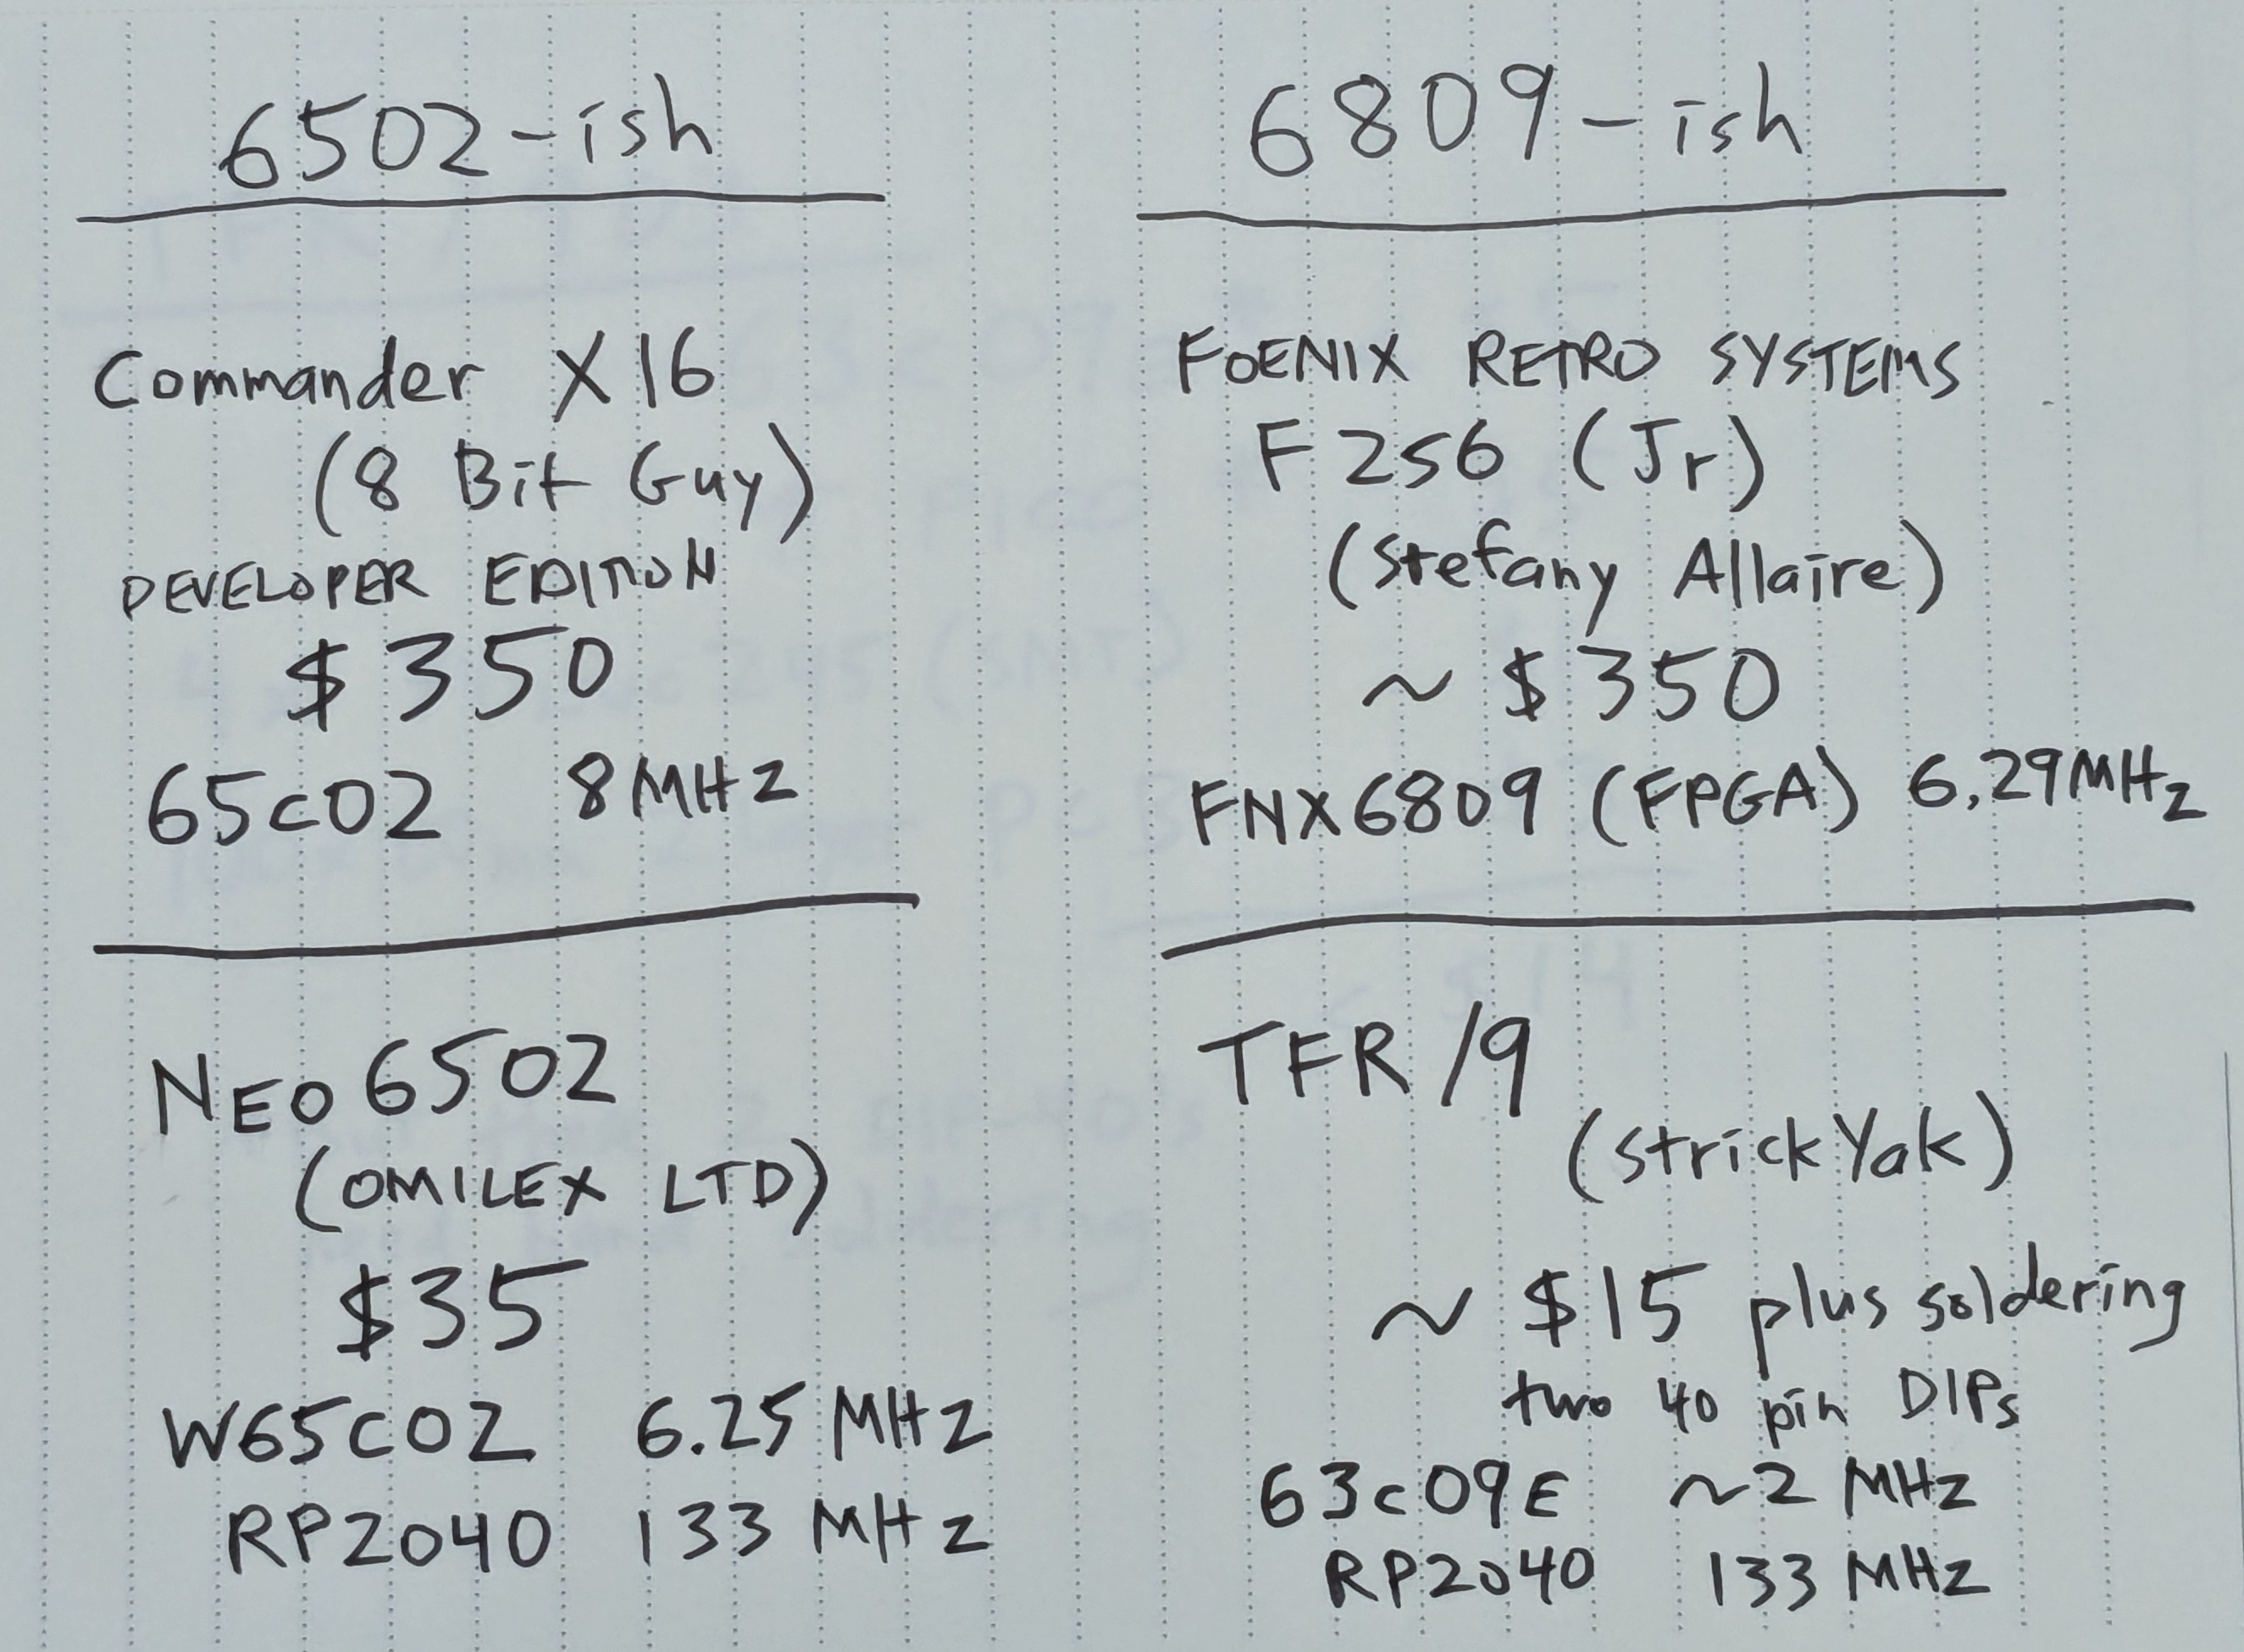 6502-ish
Commander X16
(8 Bit Guy)
DEVELOPER EDITION
$350
65c02 8MHz
NEO6502
(OMILEX LTD)
$35
W65C02 6.25 MHz
RP2040 133 MHz
6809-ish
FOENIX RETRO SYSTEMS
F256 (Jr)
(Stefany Allaire)
~ $350
FNX6809 (FPGA) 6.29MHz
TFR/9
(strickYak)
~ $15 plus soldering
two 40 pin DIPs
63c09E ~2 MHz
RP2040 133 MHz